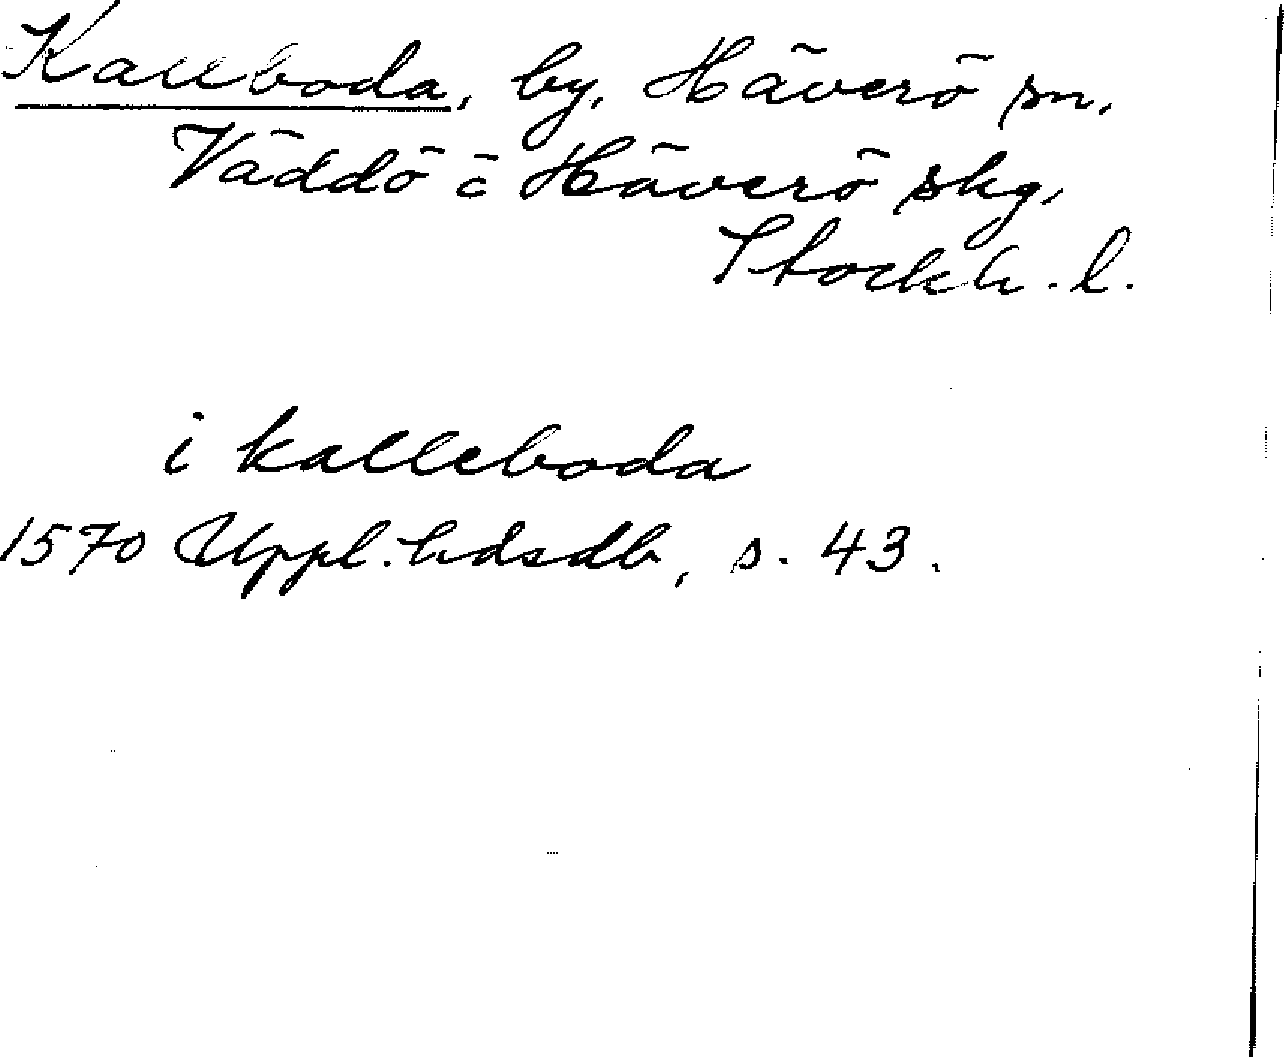 Kallboda, by, Häverö sn,
Väddö o Häverö skg,
Stockh. l.
i kalleboda
1570 Uppl. hdsdb, s. 43.